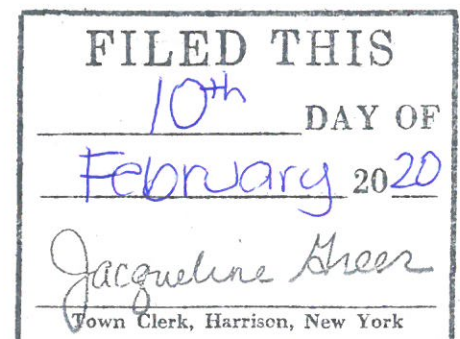 FILED THIS
10th DAY OF
February 2020
Jacqueline Greer
Town Clerk, Harrison, New York